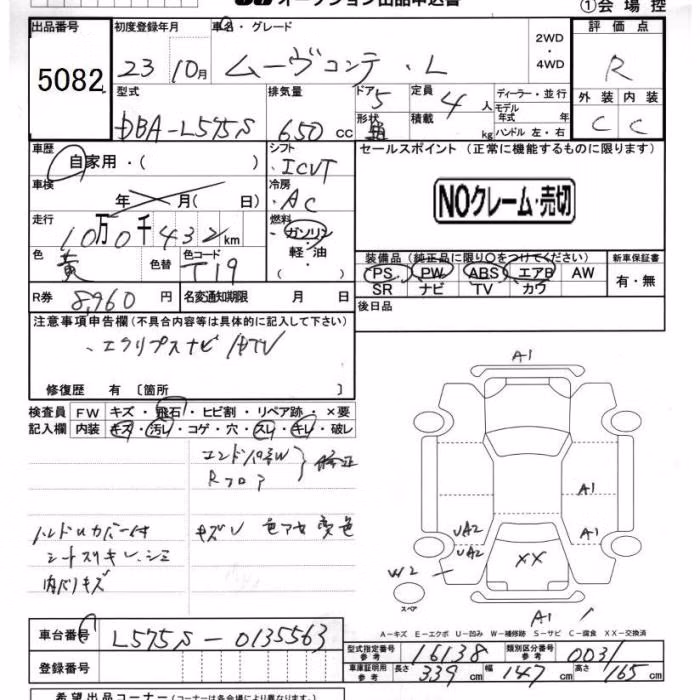 オークション出品申込書 ①会場控
出品番号 初度登録年月 車名・グレード 2WD ・ 4WD 評価点
5082 23 10月 ムーヴコンテ・L R
型式 排気量 ドア 5 定員 4人 ディーラー・並行 外装 内装
DBA-L575S 650cc 形状 積載 kg モデル年式 年 ハンドル 左・右 C C
車歴 自家用・( ) シフト ICVT セールスポイント (正常に機能するものに限ります)
車検 年 月( 日) 冷房 AC NOクレーム・売切
走行 10万0千432km 燃料 ガソリン・軽・油・( )
色 黄 色替 色コード T19 装備品 (純正品に限り○をつけてください) 新車保証書
PS PW ABS エアB AW 有・無
SR ナビ TV カワ
R券 8,960円 名変通知期限 月 日 後日品
注意事項申告欄 (不具合内容等は具体的に記入して下さい)
エクリプスナビ
修復歴 有 〔箇所 〕
検査員 FW キズ・飛石・ヒビ割・リペア跡・×要
記入欄 内装 キズ・汚レ・コゲ・穴・スレ・キレ・破レ
エンドパネルW
Rフロア 修正
ハンドルカバー付 キズレ 色アセ 変色
シートスリキレ、シミ
内バリキズ
A1
A1
A1
UA2
UA2
XX
W2
スペア
A1
A-キズ E-エクボ U-凹み W-補修跡 S-サビ C-腐食 XX-交換済
車台番号 L575S-0135563
登録番号
型式指定番号 参考 16138 類別区分番号 参考 0031
車庫証明用 参考 長さ 339cm 幅 147cm 高さ 165cm
希望出品コーナー (コーナーは各会場により異なります)